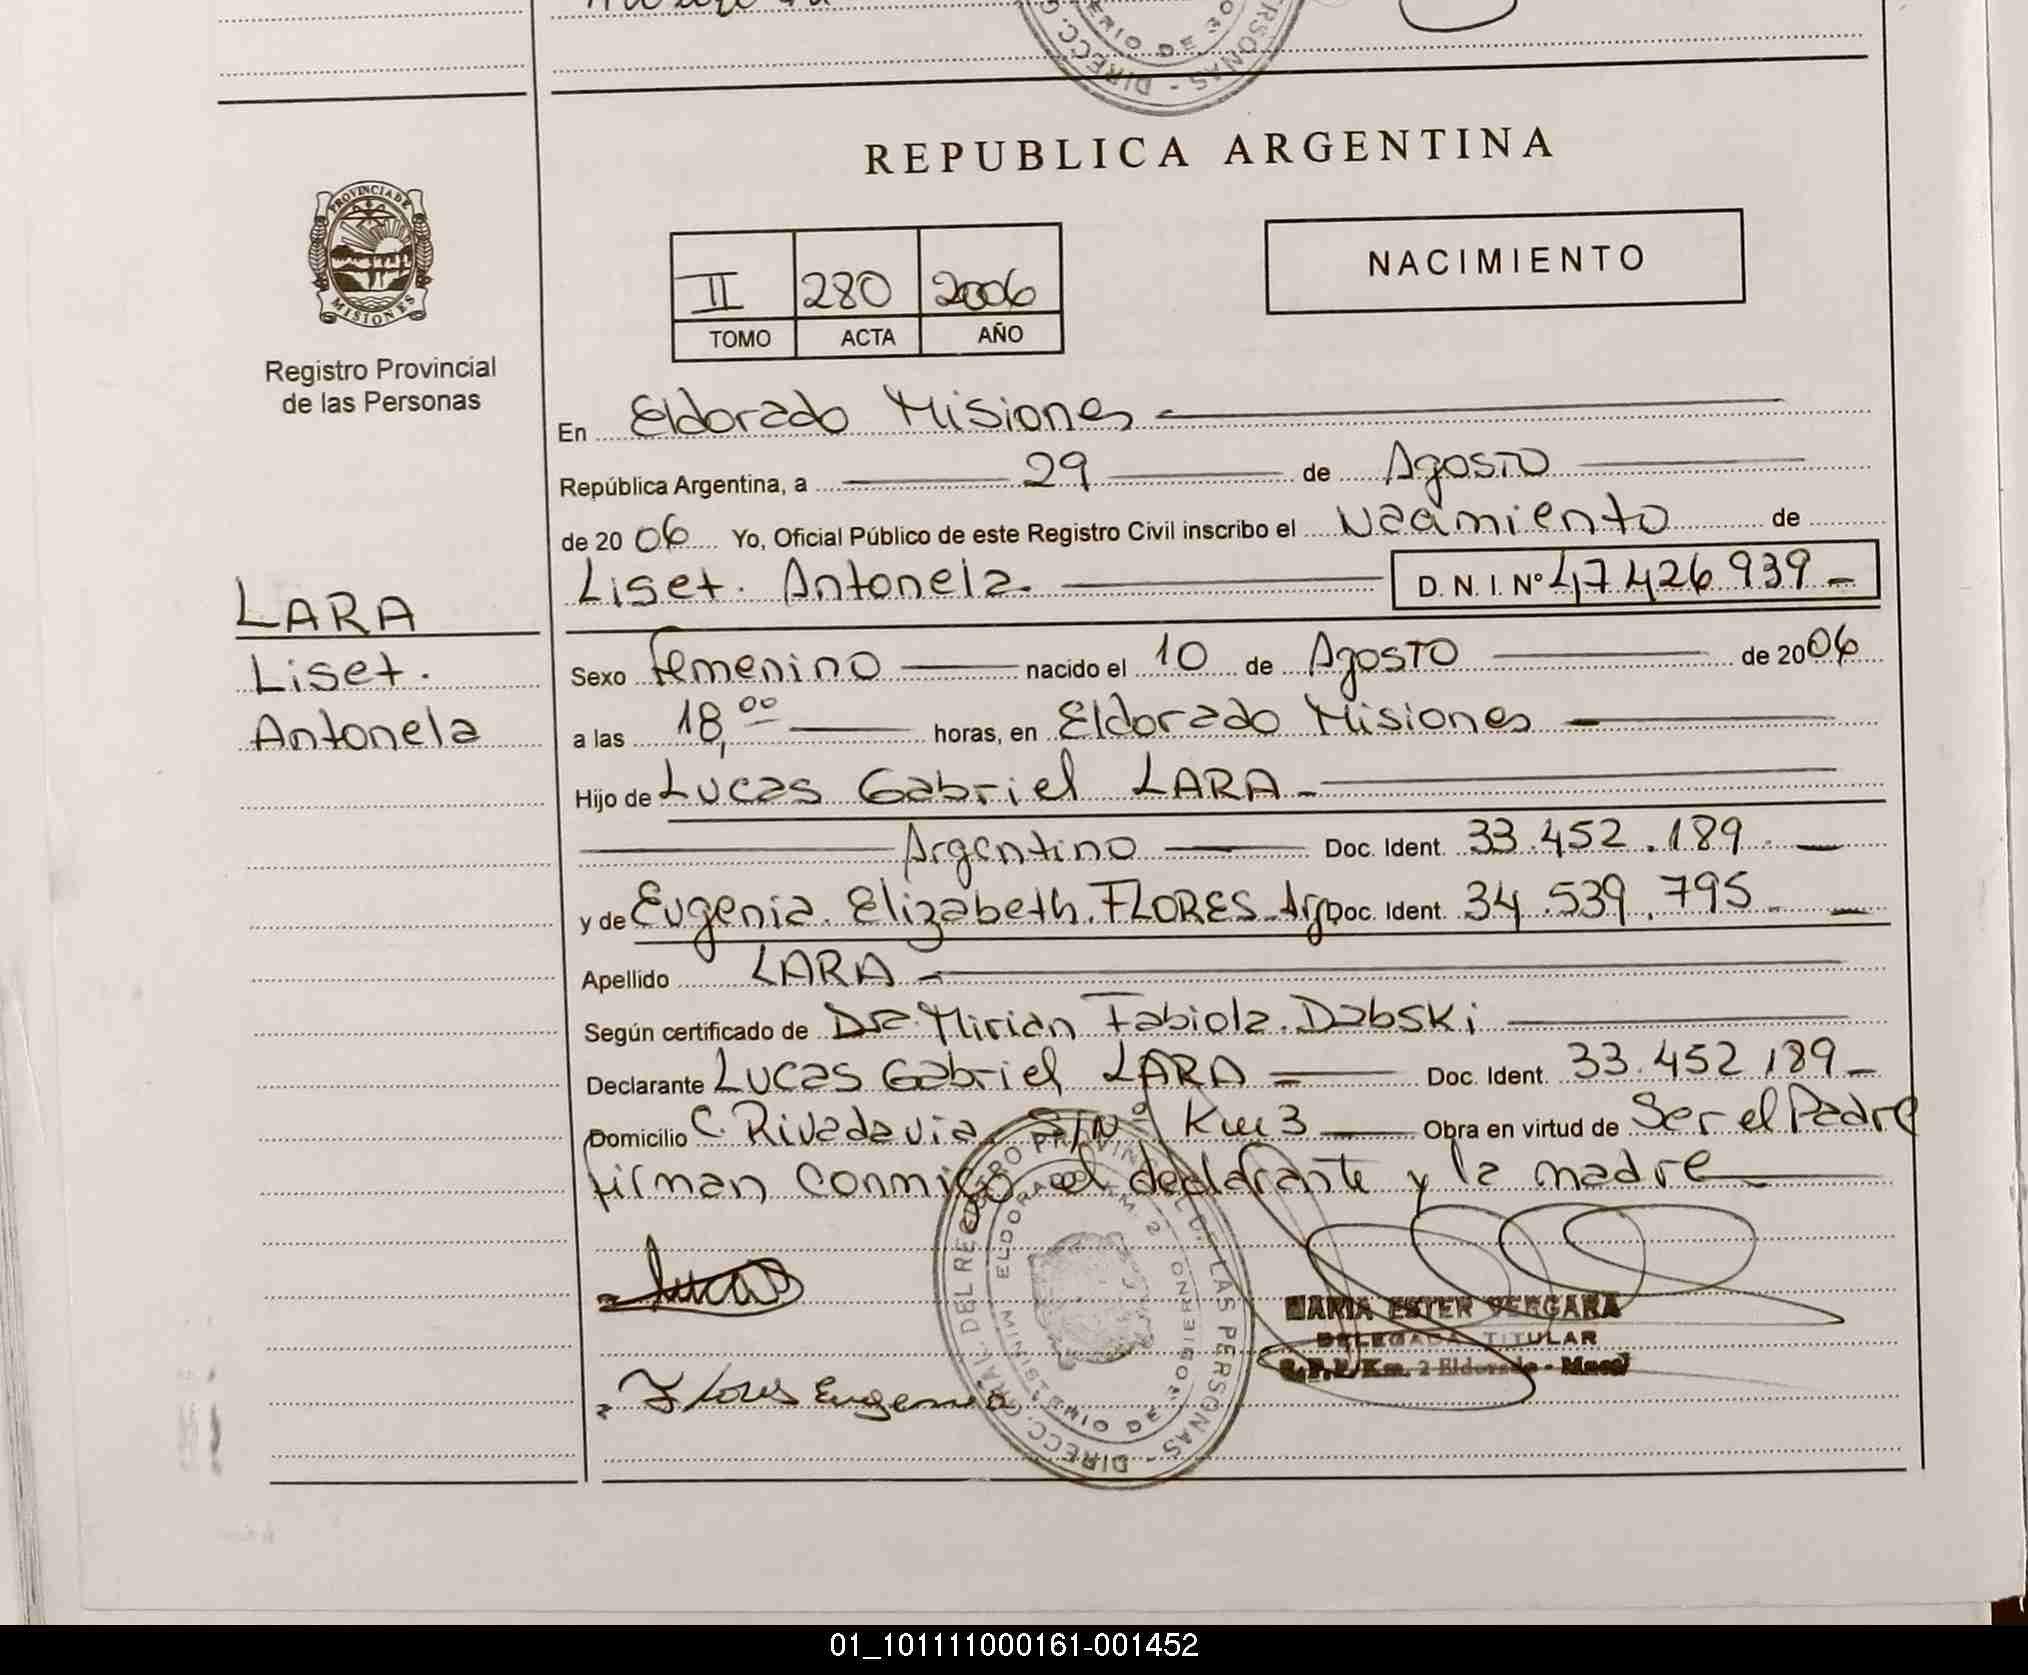 REPUBLICA ARGENTINA
PROVINCIA DE
MISIONES
Registro Provincial
de las Personas
II 280 2006
TOMO ACTA AÑO
NACIMIENTO
En Eldorado Misiones
República Argentina, a 29 de Agosto
de 2006 Yo, Oficial Público de este Registro Civil inscribo el Nacimiento de
Liset. Antonela. D. N. I. Nº 47 426 939
LARA
Liset.
Antonela
Sexo Femenino nacido el 10 de Agosto de 2006
a las 18,00 horas, en Eldorado Misiones
Hijo de Lucas Gabriel LARA
Argentino Doc. Ident. 33.452.189
y de Eugenia. Elizabeth. FLORES Arg Doc. Ident. 34.539.795
Apellido LARA
Según certificado de Dra. Mirian Fabiola. Dabski
Declarante Lucas Gabriel LARA Doc. Ident. 33.452.189
Domicilio C. Rivadavia S/Nº Km 3 Obra en virtud de Ser el Padre
firman conmigo el declarante y la madre
Lucas
Flores Eugenia
MARIA ESTER VERGARA
DELEGADA TITULAR
R.P.P. Km. 2 Eldorado - Mnes
DIRECC. GRAL. DEL REGISTRO PROVINCIAL DE LAS PERSONAS
ELDORADO KM. 2
MINISTERIO DE GOBIERNO
01_101111000161-001452